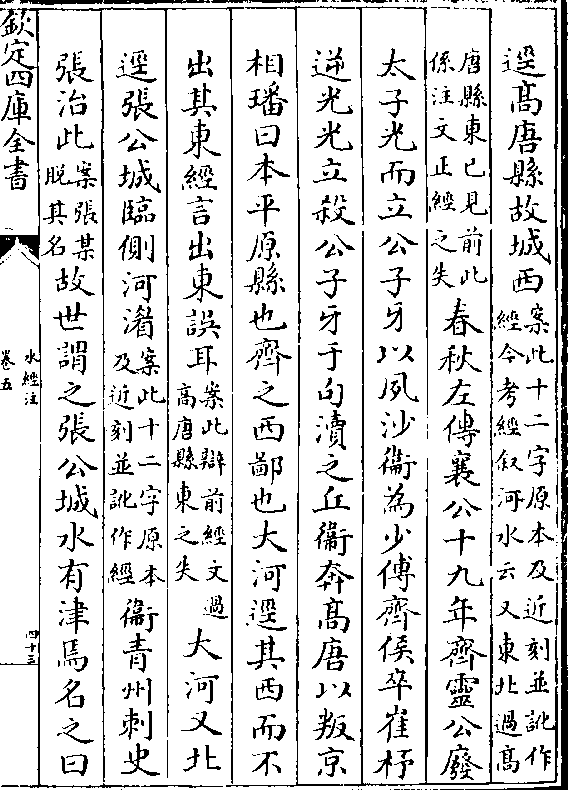 逕高唐縣故城西案此十二字原本及近刻並訛作
經今考經叙河水云又東北過高
唐縣東已見前此
係注文正經之失春秋左傳襄公十九年齊靈公廢
太子光而立公子牙以夙沙衞為少傅齊侯卒崔杼
逆光光立殺公子牙于句瀆之丘衞奔高唐以叛京
相璠曰本平原縣也齊之西鄙也大河逕其西而不
出其東經言出東誤耳案此辯前經文過
高唐縣東之失大河又北
逕張公城臨側河湄案此十二字原本
及近刻並訛作經衞青州刺史
張治此案張某
脱其名故世謂之張公城水有津焉名之曰
欽定四庫全書
水經注
卷五
四十三